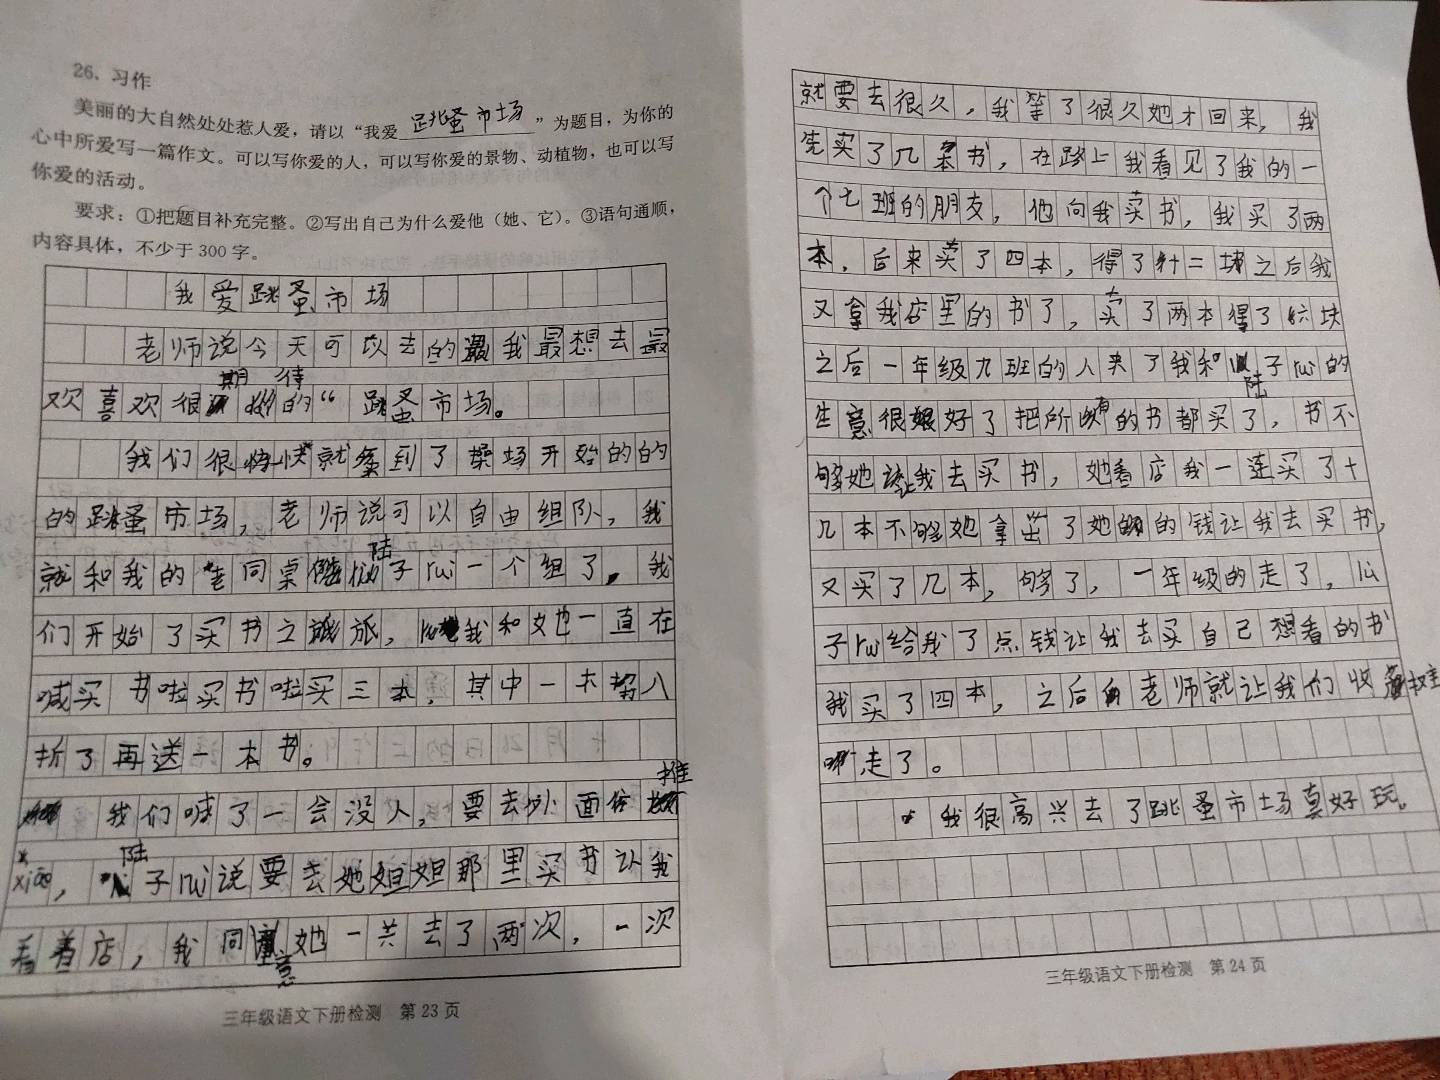 26. 习作
美丽的大自然处处惹人爱，请以“我爱 跳蚤市场 ”为题目，为你的
心中所爱写一篇作文。可以写你爱的人，可以写你爱的景物、动植物，也可以写
你爱的活动。
要求：①把题目补充完整。②写出自己为什么爱他（她、它）。③语句通顺，
内容具体，不少于 300 字。
我爱跳蚤市场
老师说今天可以去的我最想去最
欢喜欢很期待的“跳蚤市场。
我们很快就来到了操场开始的的
的跳蚤市场，老师说可以自由组队，我
就和我的同桌陆子rui一个组了。我
们开始了买书之旅，我和她一直在
喊买书啦买书啦买三本，其中一本八
折了再送一本书。
我们喊了一会没人，要去外面推
xiāo，陆子rui说要去她姐姐那里买书让我
看着店，我同意她一共去了两次，一次
三年级语文下册检测 第 23 页
就要去很久，我等了很久她才回来，我
先买了几本书，在路上我看见了我的一
个七班的朋友，他向我卖书，我买了两
本，后来卖了四本，得了十二块之后我
又拿我店里的书了，卖了两本得了六块
之后一年级九班的人来了我和陆子rui的
生意很好了把所有的书都买了，书不
够她让我去买书，她看店我一连买了十
几本不够她拿出了她的钱让我去买书，
又买了几本，够了，一年级的走了，
子rui给我了点钱让我去买自己想看的书
我买了四本，之后老师就让我们收
走了。
我很高兴去了跳蚤市场真好玩。
三年级语文下册检测 第 24 页